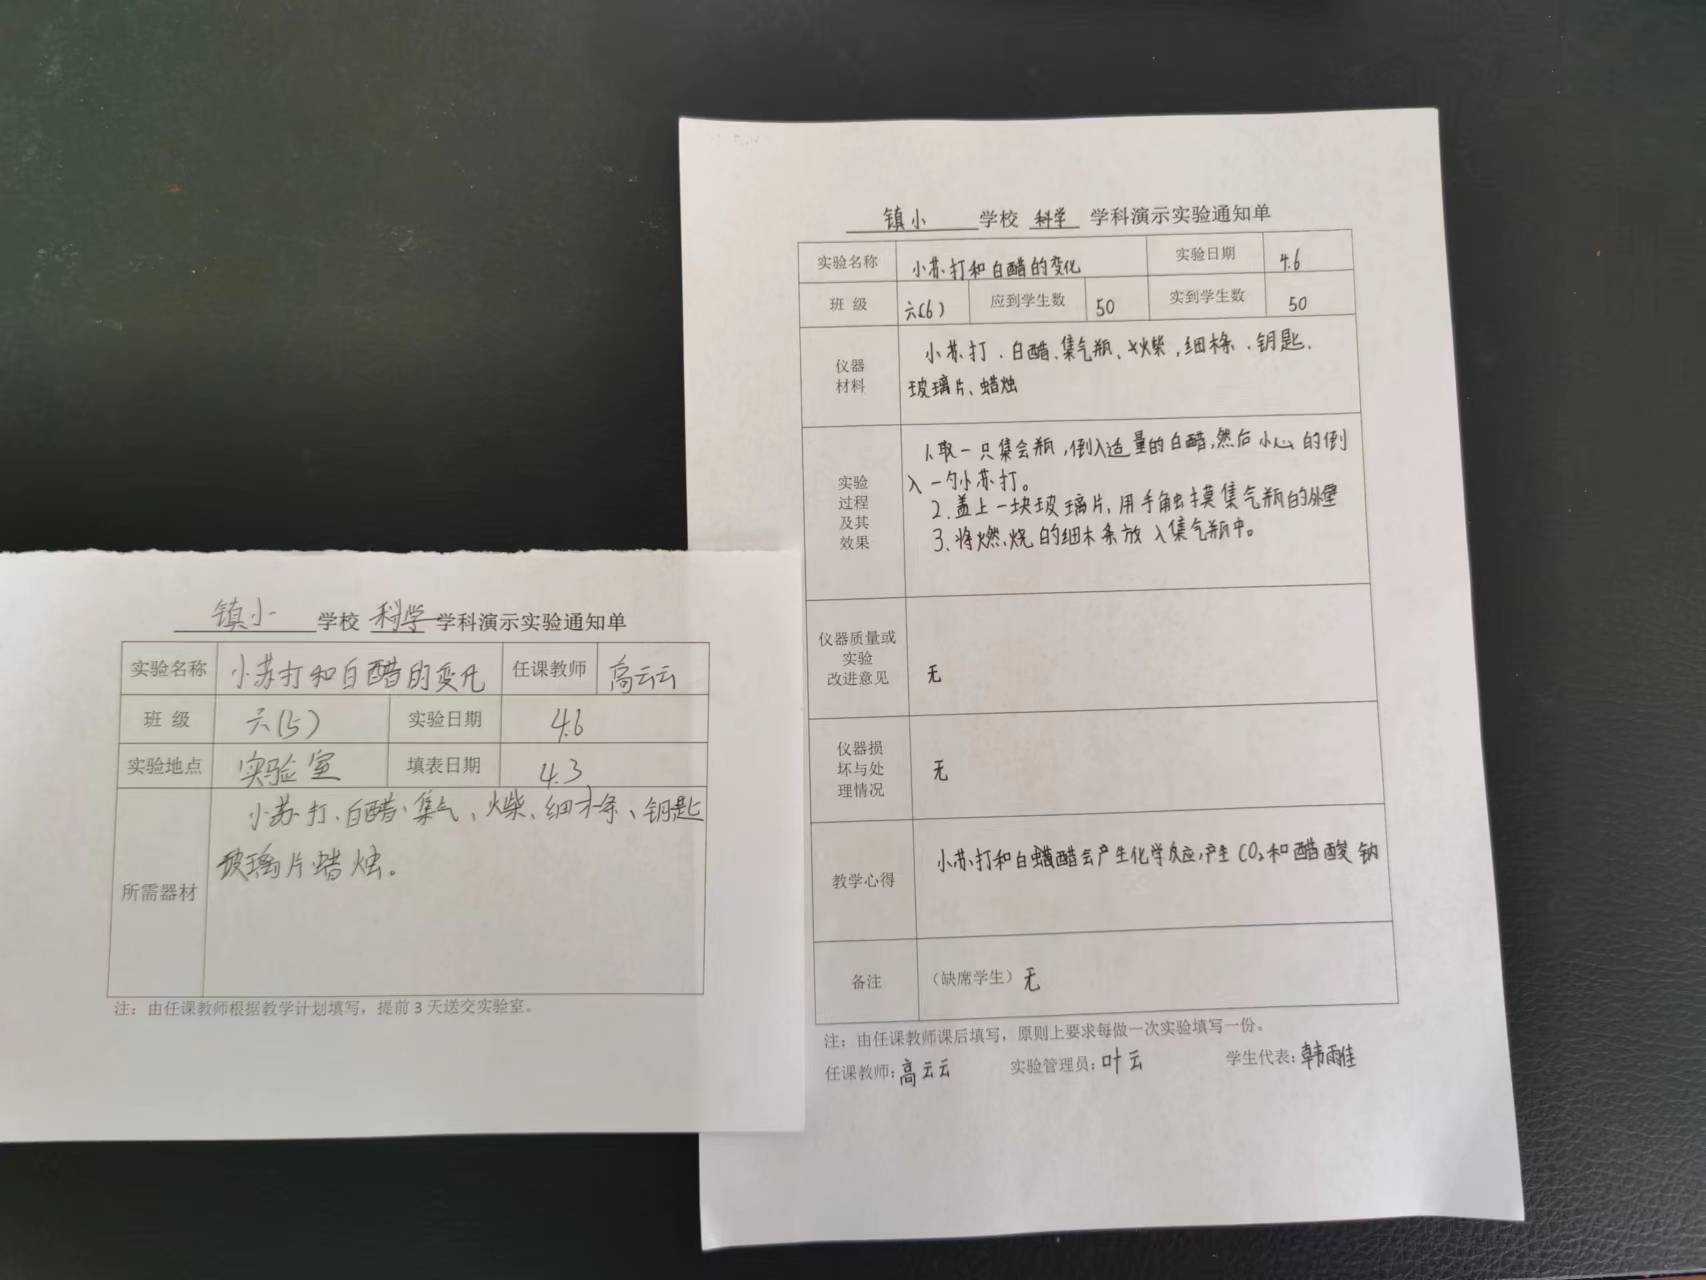 镇小 学校 科学 学科演示实验通知单
实验名称 小苏打和白醋的变化 任课教师 高云云
班 级 六(5) 实验日期 4.6
实验地点 实验室 填表日期 4.3
所需器材 小苏打、白醋、集气、火柴、细木条、钥匙
玻璃片蜡烛。
注：由任课教师根据教学计划填写，提前3天送交实验室。
镇小 学校 科学 学科演示实验通知单
实验名称 小苏打和白醋的变化 实验日期 4.6
班 级 六(6) 应到学生数 50 实到学生数 50
仪器
材料
小苏打、白醋、集气瓶、火柴，细木条、钥匙、
玻璃片、蜡烛
实验
过程
及其
效果
1.取一只集会瓶，倒入适量的白醋，然后小心的倒
入一勺小苏打。
2.盖上一块玻璃片，用手触摸集气瓶的外壁
3.将燃烧的细木条放入集气瓶中。
仪器质量或
实验
改进意见
无
仪器损
坏与处
理情况
无
教学心得 小苏打和白醋会产生化学反应，产生CO₂和醋酸钠
备注 （缺席学生）无
注：由任课教师课后填写，原则上要求每做一次实验填写一份。
任课教师：高云云 实验管理员：叶云 学生代表：韩雨佳